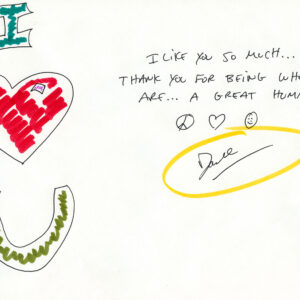 I
U
I LIKE YOU SO MUCH...
THANK YOU FOR BEING WHO
ARE... A GREAT HUMA